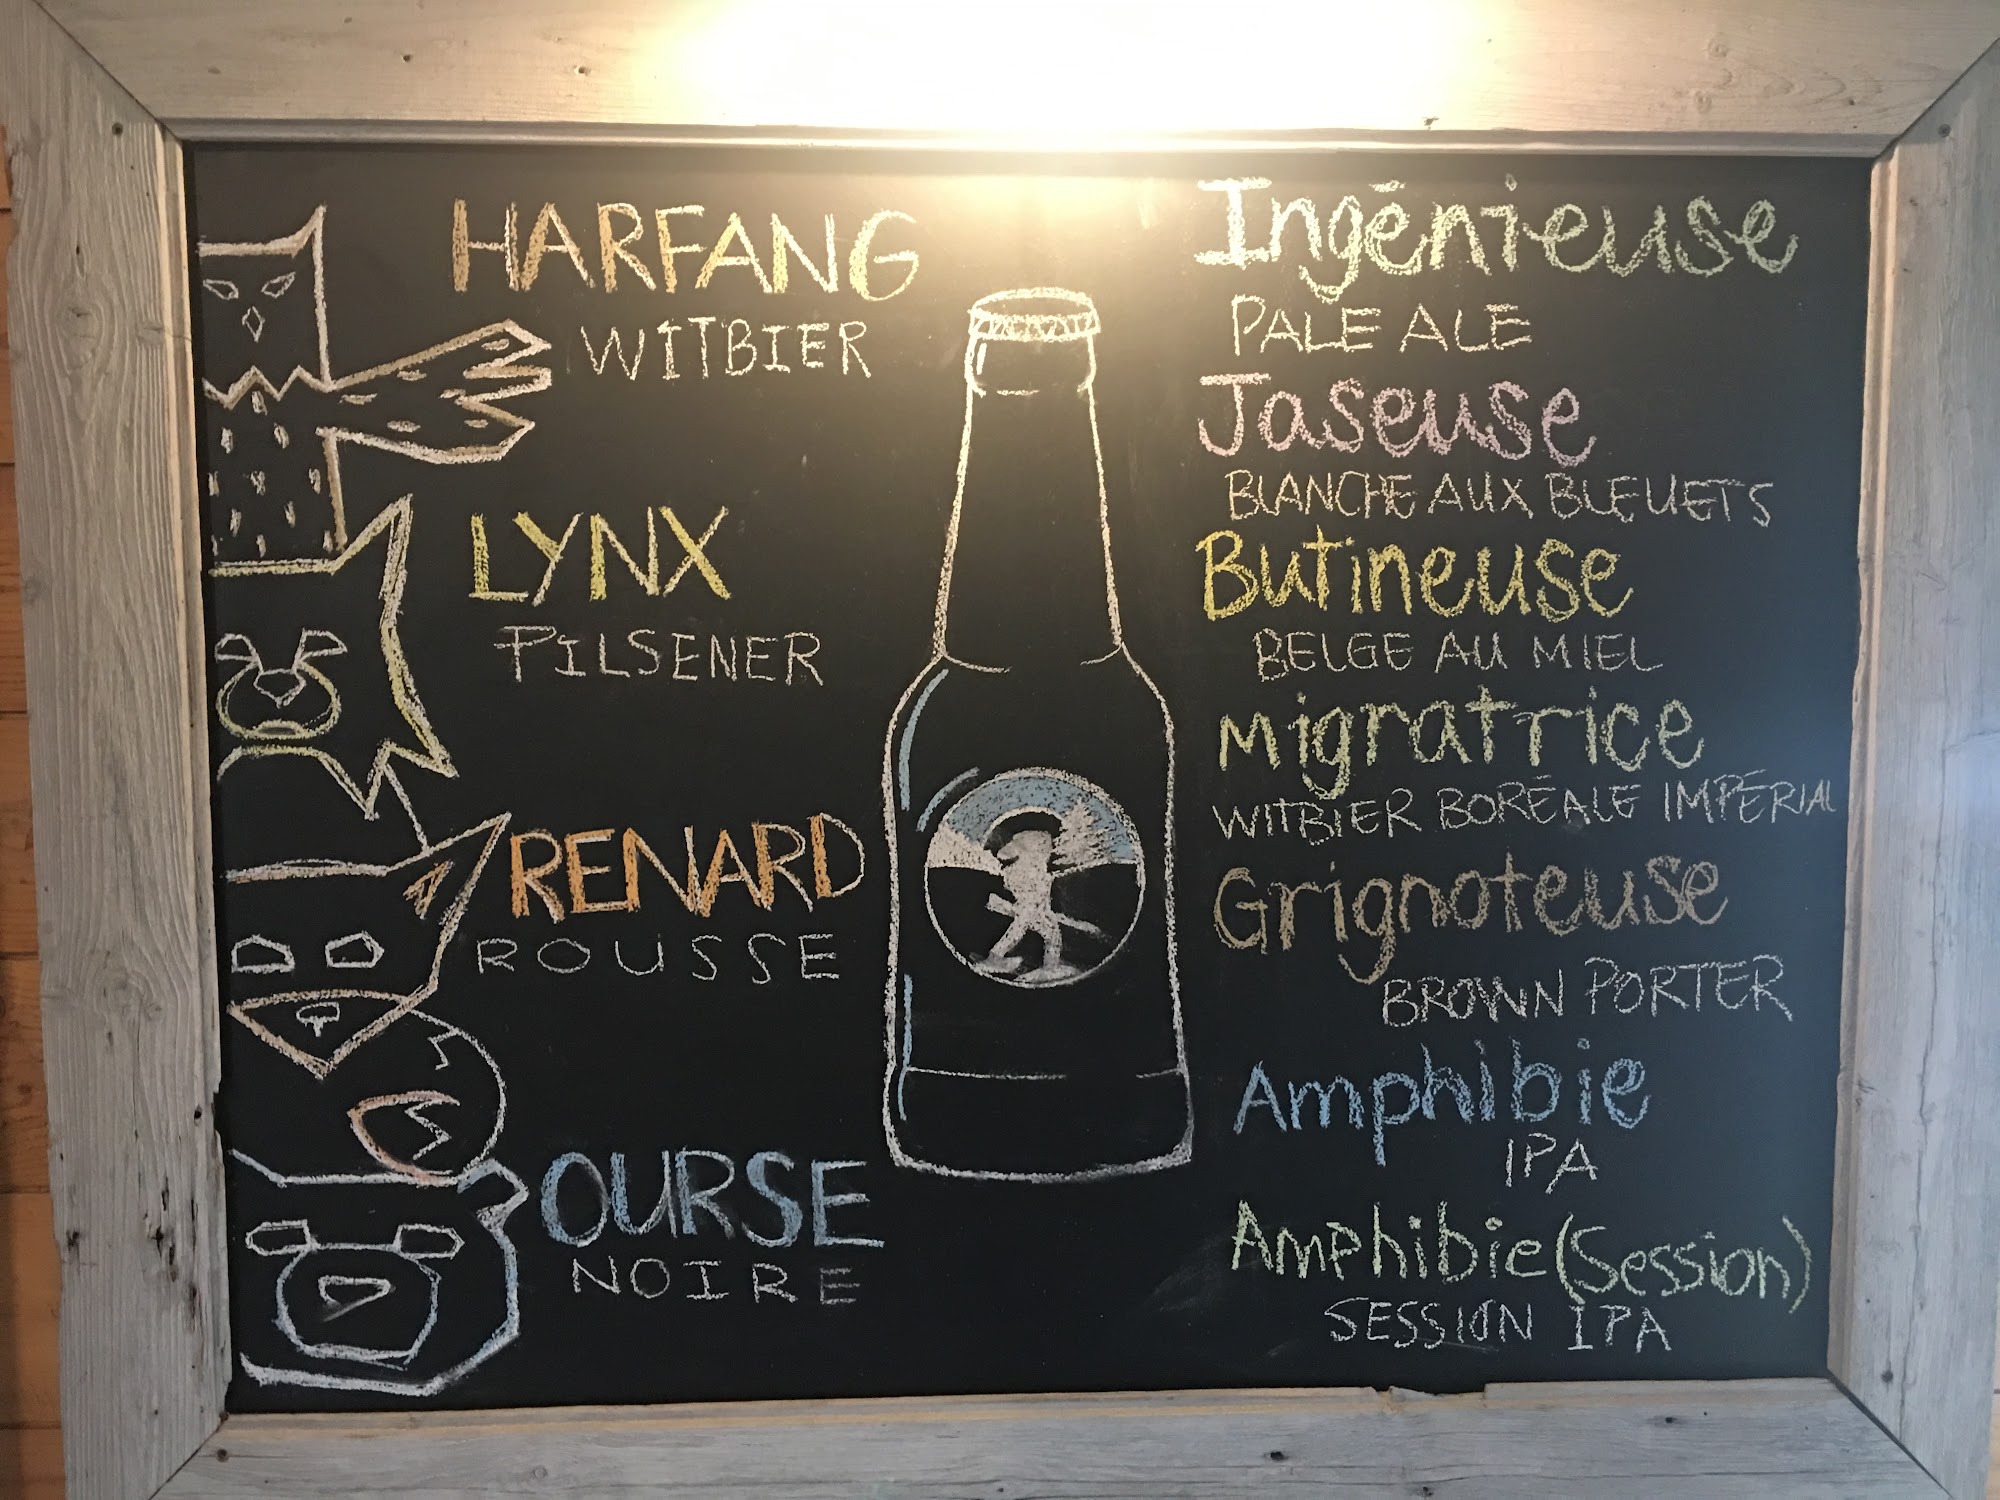 HARFANG
WITBIER
LYNX
PILSENER
RENARD
ROUSSE
OURSE
NOIRE
Ingénieuse
PALE ALE
Jaseuse
BLANCHE AUX BLEUETS
Butineuse
BELGE AU MIEL
Migratrice
WITBIER BORÉALE IMPÉRIAL
Grignoteuse
BROWN PORTER
Amphibie
IPA
Amphibie (Session)
SESSION IPA